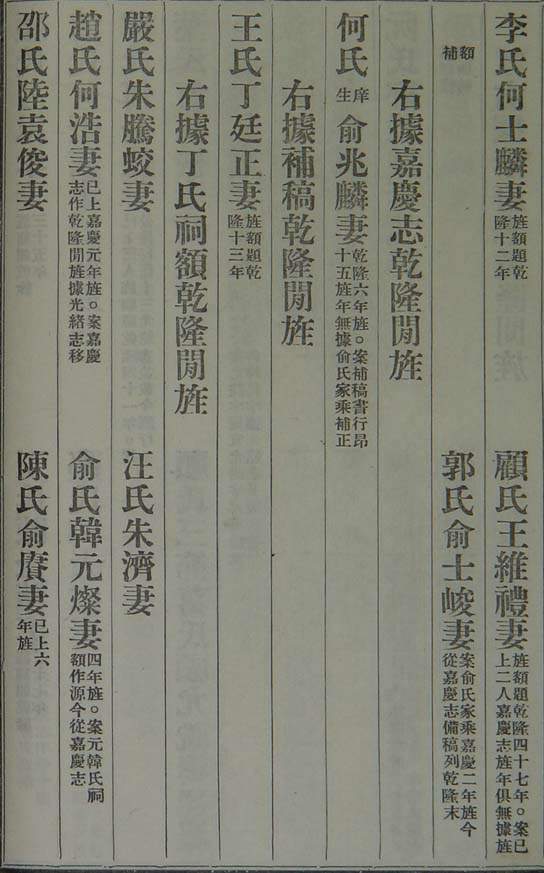 李氏何士麟妻旌額題乾隆十二年　顧氏王維禮妻旌額題乾隆四十七年○案已上二人嘉慶志旌年俱無據旌
額補　郭氏俞士峻妻案俞氏家乘嘉慶二年旌今從嘉慶志備稿列乾隆末
右據嘉慶志乾隆閒旌
何氏庠生俞兆麟妻乾隆六年旌○案補稿書行昻十五旌年無據俞氏家乘補正
右據補稿乾隆閒旌
王氏丁廷正妻旌額題乾隆十三年
右據丁氏祠額乾隆閒旌
嚴氏朱騰蛟妻　汪氏朱濟妻
趙氏何浩妻已上嘉慶元年旌○案嘉慶志作乾隆閒旌據光緒志移　俞氏韓元燦妻四年旌○案元韓氏祠額作源今從嘉慶志
邵氏陸袁俊妻　陳氏俞賡妻已上六年旌